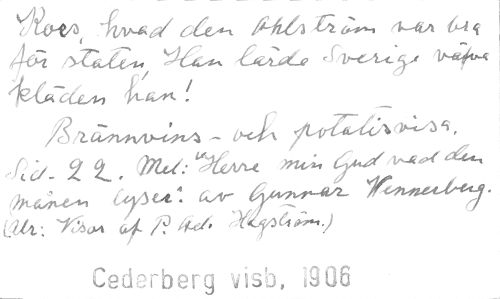 Kors, hvad den Ahlström var bra
för staten, Han lärde Sverige väfva
kläden han!
Brännvins- och potatisvisa.
Sid. 22. Mel: "Herre min Gud vad den
månen lyser". av Gunnar Wennerberg.
(Ur: Visor af P. Ad. Hagström.)
Cederberg visb, 1906